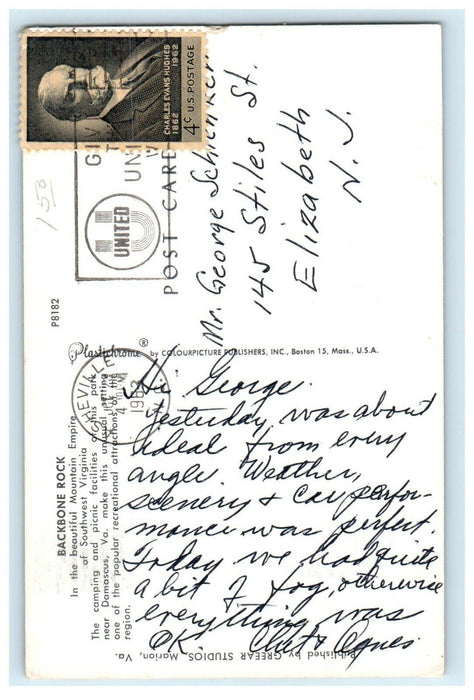 CHARLES EVANS HUGHES
1862 1962
4¢ U.S. POSTAGE
GIV
UNI
UNITED
150
POST CARD
Mr. George
145 Stiles St.
Elizabeth
N. J.
P8182
Plastichrome ® by COLOURPICTURE PUBLISHERS, INC., Boston 15, Mass., U.S.A.
BACKBONE ROCK
In the beautiful Mountain Empire
of Southwest Virginia
The camping and picnic facilities of this park
near Damascus, Va. make this unusual setting
one of the popular recreational attractions of the
region.
Published by GREEAR STUDIOS, Marion, Va.
HEVILLE
4 PM
1963
N
Hi George.
Yesterday was about
ideal from every
angle. Weather,
scenery & car perfor-
mance was perfect.
Today we had quite
a bit of fog, otherwise
everything was
OK. Chet & Agnes